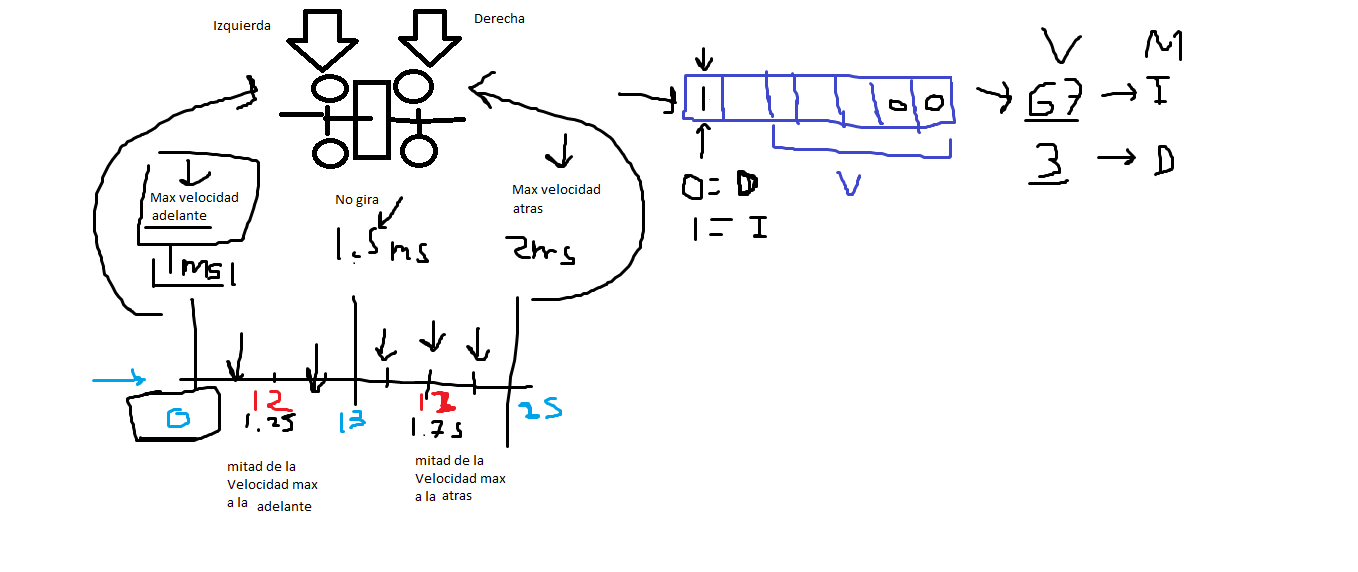 Izquierda
Derecha
Max velocidad
adelante
1ms
No gira
1.5ms
Max velocidad
atras
2ms
1 0 0
0= D
1 = I
V
V M
67 → I
3 → D
0
12
1.25
13
12
1.75
25
mitad de la
Velocidad max
a la adelante
mitad de la
Velocidad max
a la atras